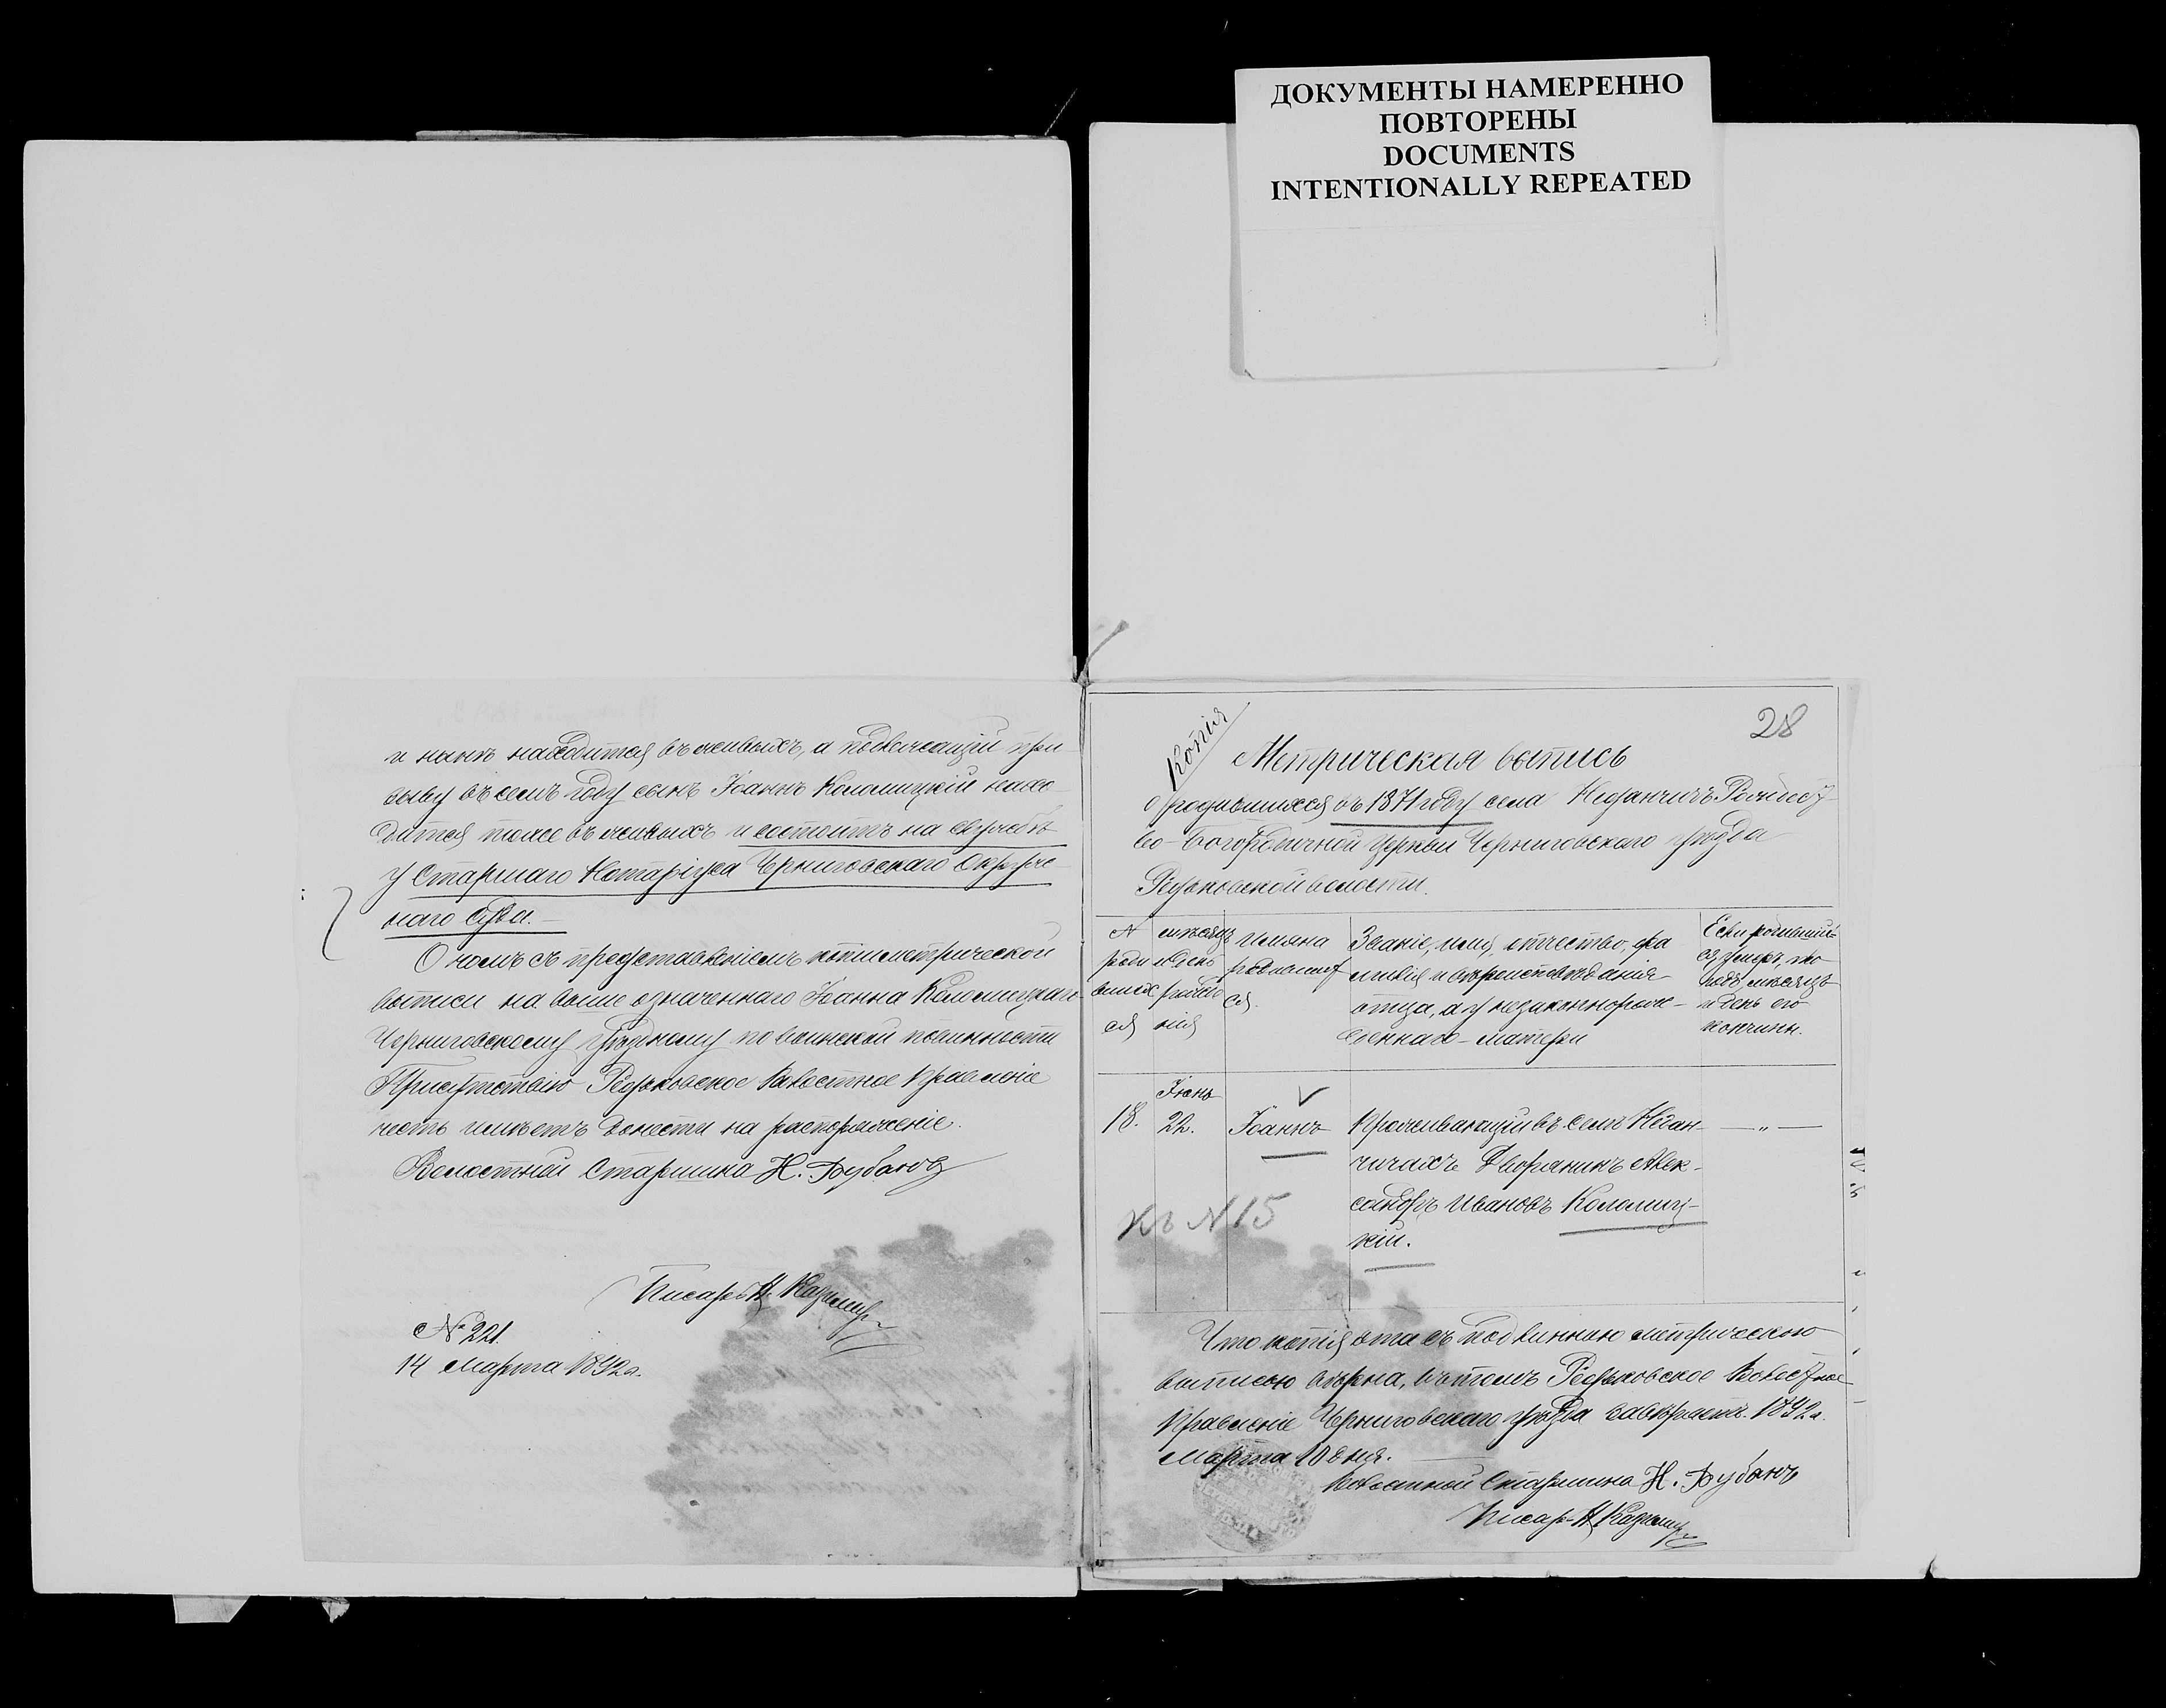 ДОКУМЕНТЫ НАМЕРЕННО
ПОВТОРЕНЫ
DOCUMENTS
INTENTIONALLY REPEATED
и нынѣ находится въ живыхъ, а подлежащій при
зыву въ семъ году сынъ Іоаннъ Коломицкій нахо
дится тоже въ живыхъ и состоитъ на службѣ
у Старшаго Нотаріуса Черниговскаго Окруж
наго Суда.
О чемъ съ представленіемъ копіи метрической
выписи на выше означеннаго Іоанна Коломицкаго
Черниговскому уѣздному по воинской повинности
Присутствію Редьковское Волостное Правленіе
честь имѣетъ донести на распоряженіе.
Волостной Старшина Н.
Писарь Н.
№ 221.
14 Марта 1892 г.
28
Копія
Метрическая выпись
о родившихся въ 1871 году села Неданчичъ Рождест
во-Богородичной Церкви Черниговскаго уѣзда
Редьковской волости.
№
роди
вших
ся
мѣсяцъ
и день
рожде
нія
Имяна
родивших
ся.
Званіе, имя, отчество, фа
милія и вѣроисповѣданія
отца, а у незаконнорож-
деннаго - матери
Если родившій-
ся умеръ, то
годъ, мѣсяцъ
и день его
кончины.
18.
Іюнь
22.
Іоаннъ
Проживающій въ селѣ Недан-
чичахъ Дворянинъ Алек-
сандръ Ивановъ Коломиц-
кій.
— „ —
Къ № 15
Что копія эта съ подлинною метрическою
выписью вѣрна, въ томъ Редьковское Волостное
Правленіе Черниговскаго уѣзда завѣряетъ. 1892 г.
Марта 10 дня.
Волостной Старшина Н.
Писарь Н.